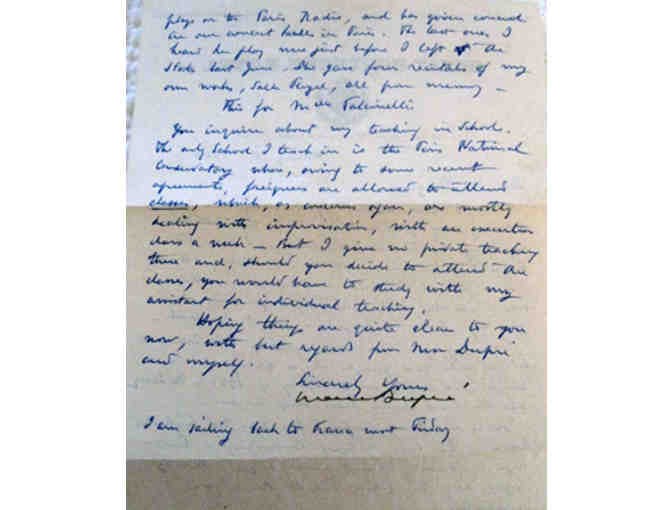 plays on the Paris Radio, and has given several
in our concert halls in Paris. The last ones I
heard her play were just before I left for the
States last June. She gave four recitals of my
own works, Salle Pleyel, all from memory —
This for Melle Falcinelli
You inquire about my teaching in School.
The only School I teach in is the Paris National
Conservatory where, owing to some recent
agreements, foreigners are allowed to attend
classes, which, as concerns organ, are mostly
dealing with improvisation, with an execution
class a week — But I give no private teaching
there and, should you decide to attend the
classes, you would have to study with my
assistant for individual teaching.
Hoping things are quite clear to you
now, with best regards from Mme Dupré
and myself.
Sincerely Yours
Marcel Dupré
I am sailing back to France next Friday